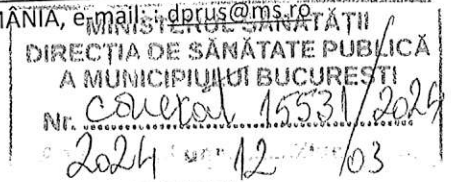 MÂNIA, e-mail: dprus@ms.ro
MINISTERUL SĂNĂTĂȚII
DIRECȚIA DE SĂNĂTATE PUBLICĂ
A MUNICIPIULUI BUCUREȘTI
Nr. conexat 15531/2024
2024 12 /03